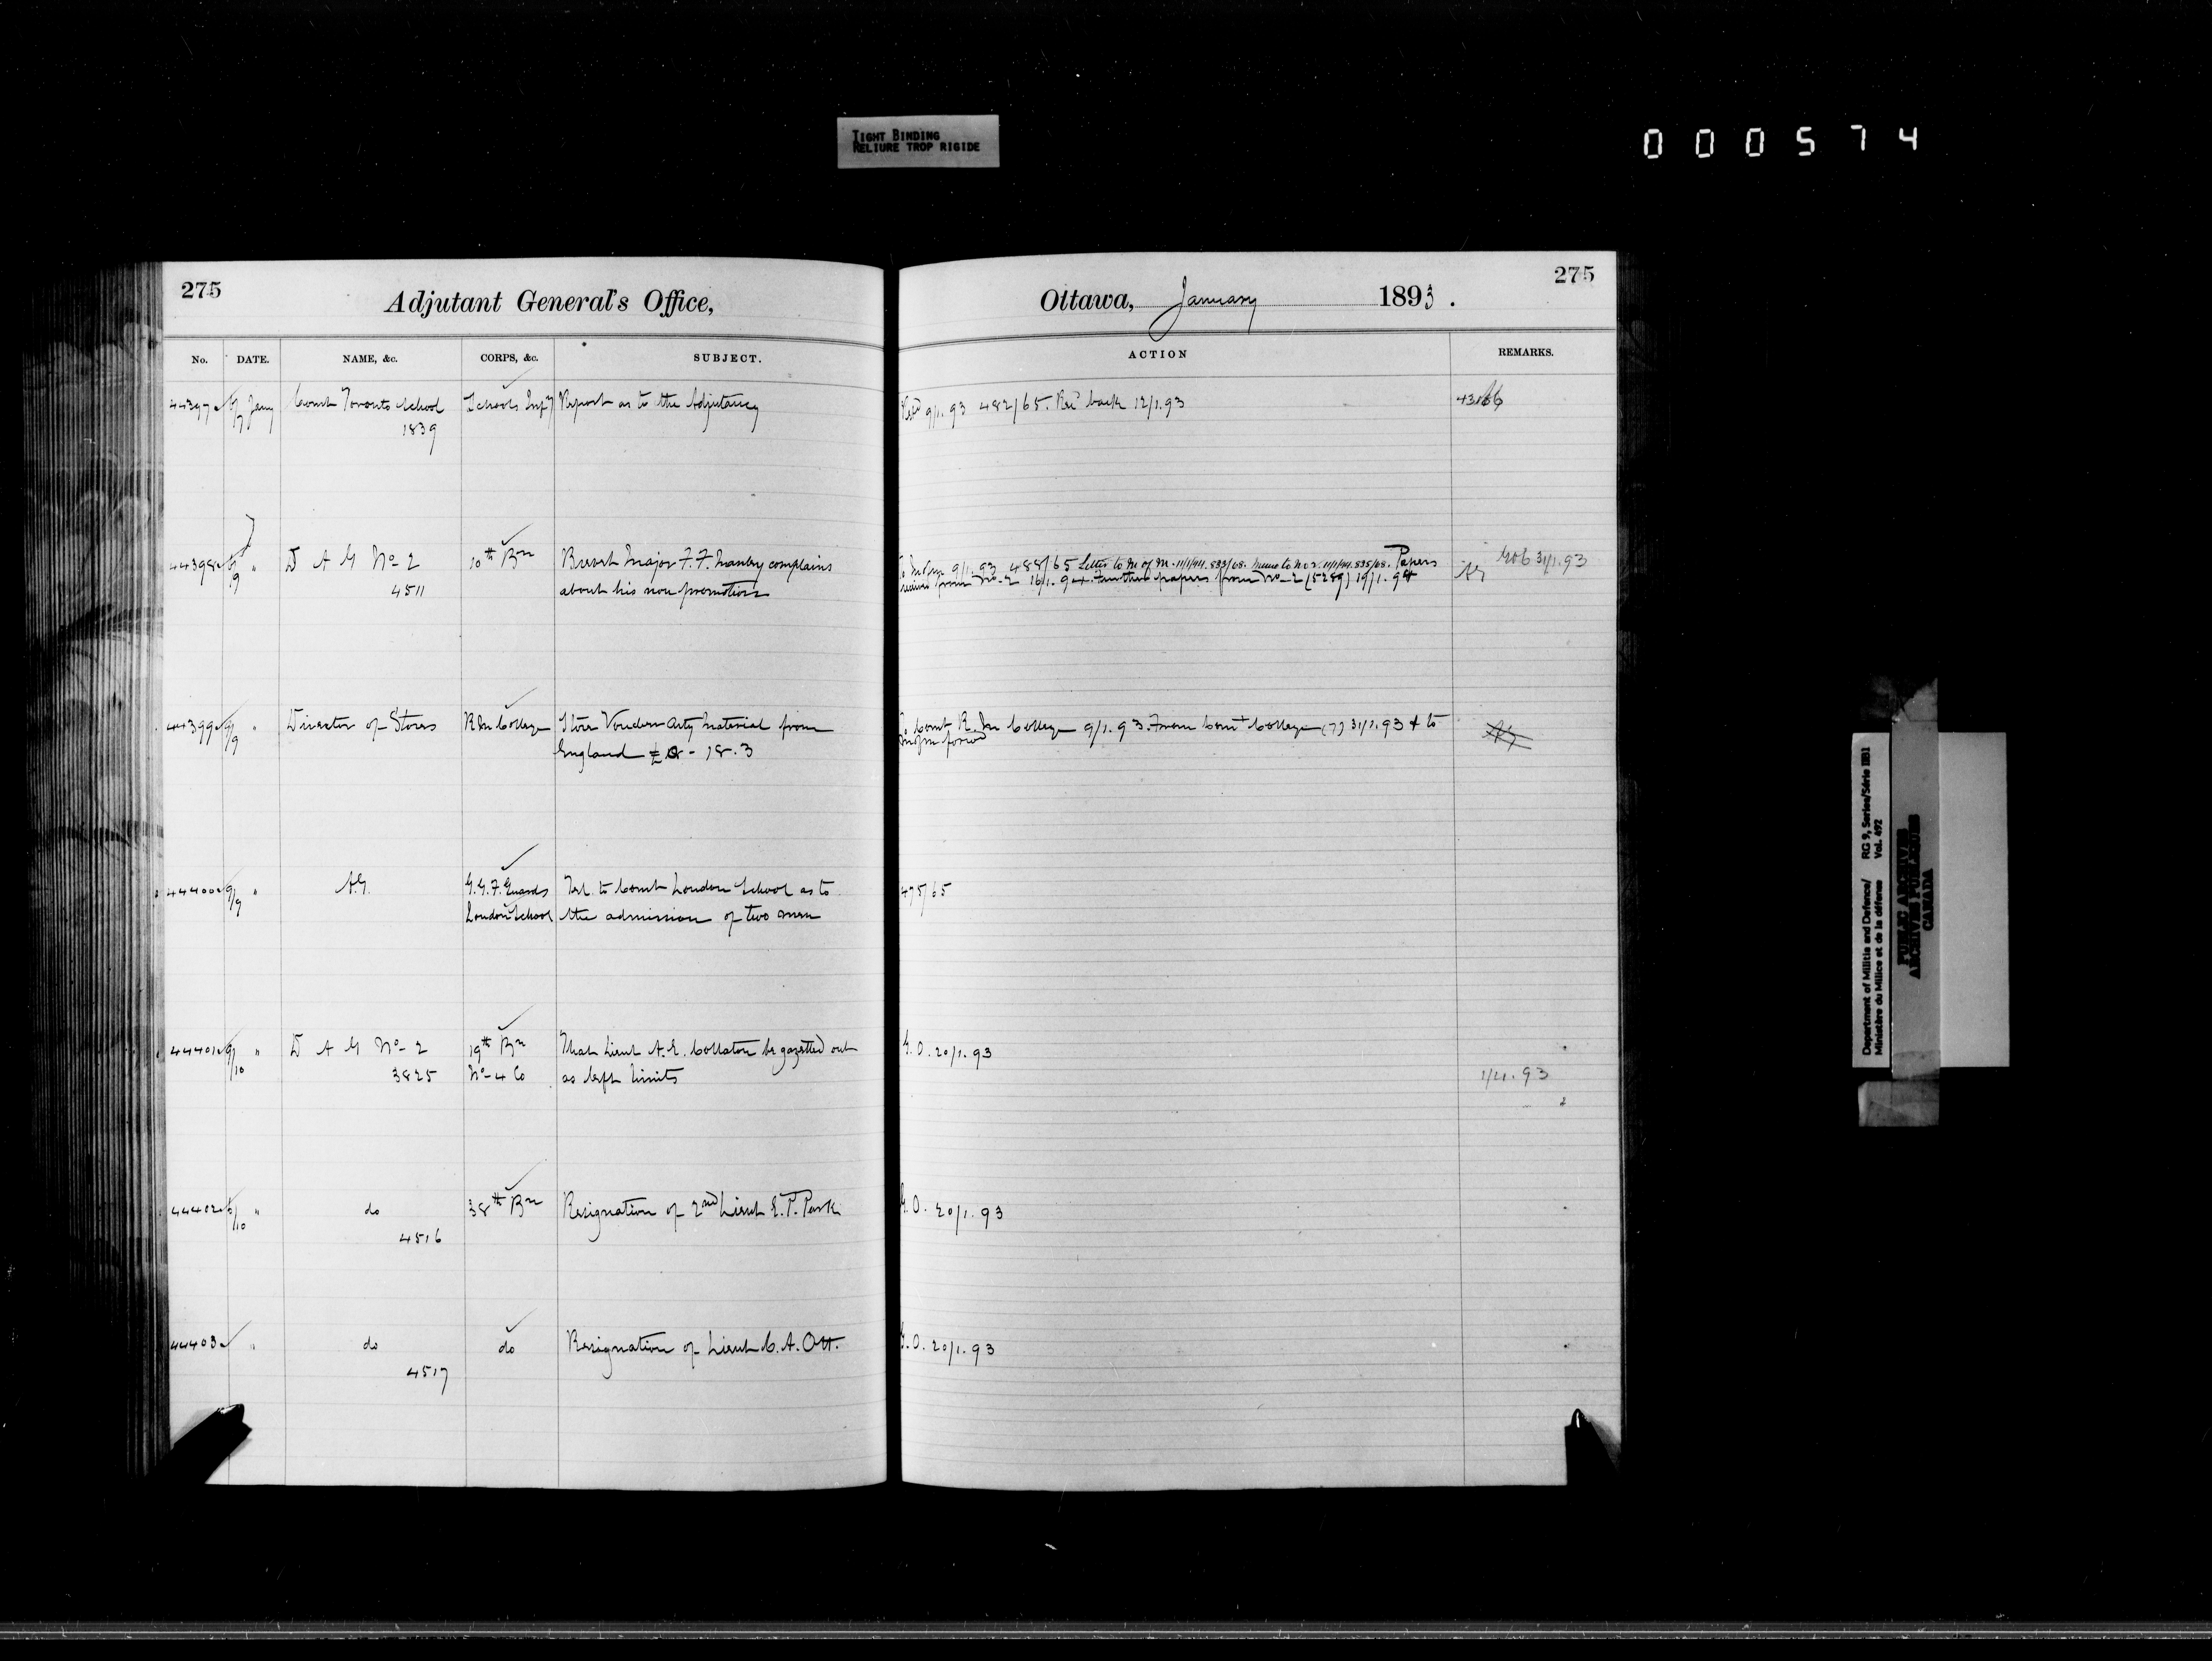 TIGHT BINDING
RELIURE TROP RIGIDE
000574
275
Adjutant General's Office,
No. DATE. NAME, &c. CORPS, &c. SUBJECT.
44397 6/7 Jany Comdt Toronto School Schools Infy Report as to the Adjutancy
1839
44398 6/9 " D A G No 2 10th Bn Brevet Major F. F. Manley complains
4511 about his non promotion
44399 9/9 " Director of Stores R M College Store Vouchers Arty Material from
England - 18.3
44400 9/9 " A.G. G.G.F. Guards Tel. to Comdt London School as to
London School the admission of two men
44401 9/10 " D A G No 2 19th Bn That Lieut A.E. be gazetted out
3825 No 4 Co as left limits
44402 6/10 " do 38th Bn Resignation of 2nd Lieut E.P. Park
4516
44403 " do do Resignation of Lieut C.A. Ott.
4517
275
Ottawa, January 1893.
ACTION REMARKS.
9/1.93 482/65. Recd back 12/1.93
9/1.93 488/65 Letter to M of M. 11/1/94. 833/68. Memo to No 2. 11/1/94. 835/68. Papers 31/1.93
received from No 2 16/1.94. Further papers from No 2 (5289) 19/1.94 AG
To Comdt R. M College 9/1.93. From Comt College (7) 31/1.93 & to
475/65
G.O. 20/1.93
1/4.93
G.O. 20/1.93
G.O. 20/1.93
Department of Militia and Defence/ RG 9, Series/Série IIB1
Ministère du Milice et de la défense Vol. 492
PUBLIC ARCHIVES
ARCHIVES PUBLIQUES
CANADA